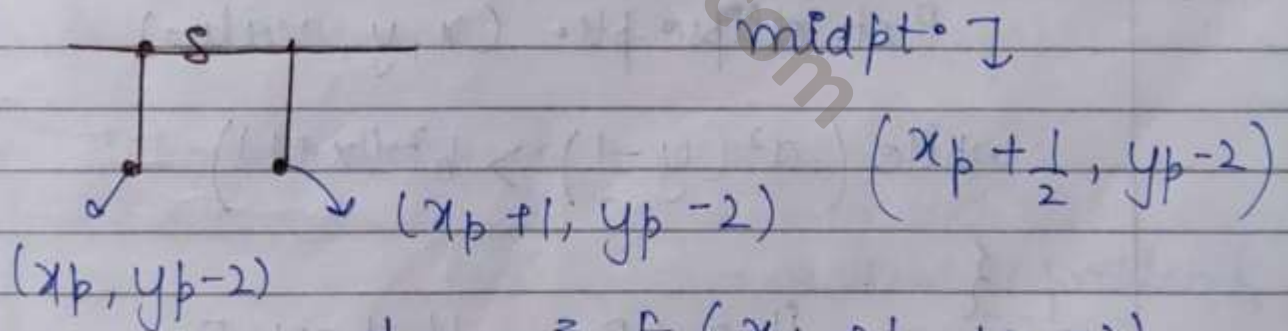 S
midpt.
(xp + 1/2, yp-2)
(xp +1, yp -2)
(xp, yp-2)
com